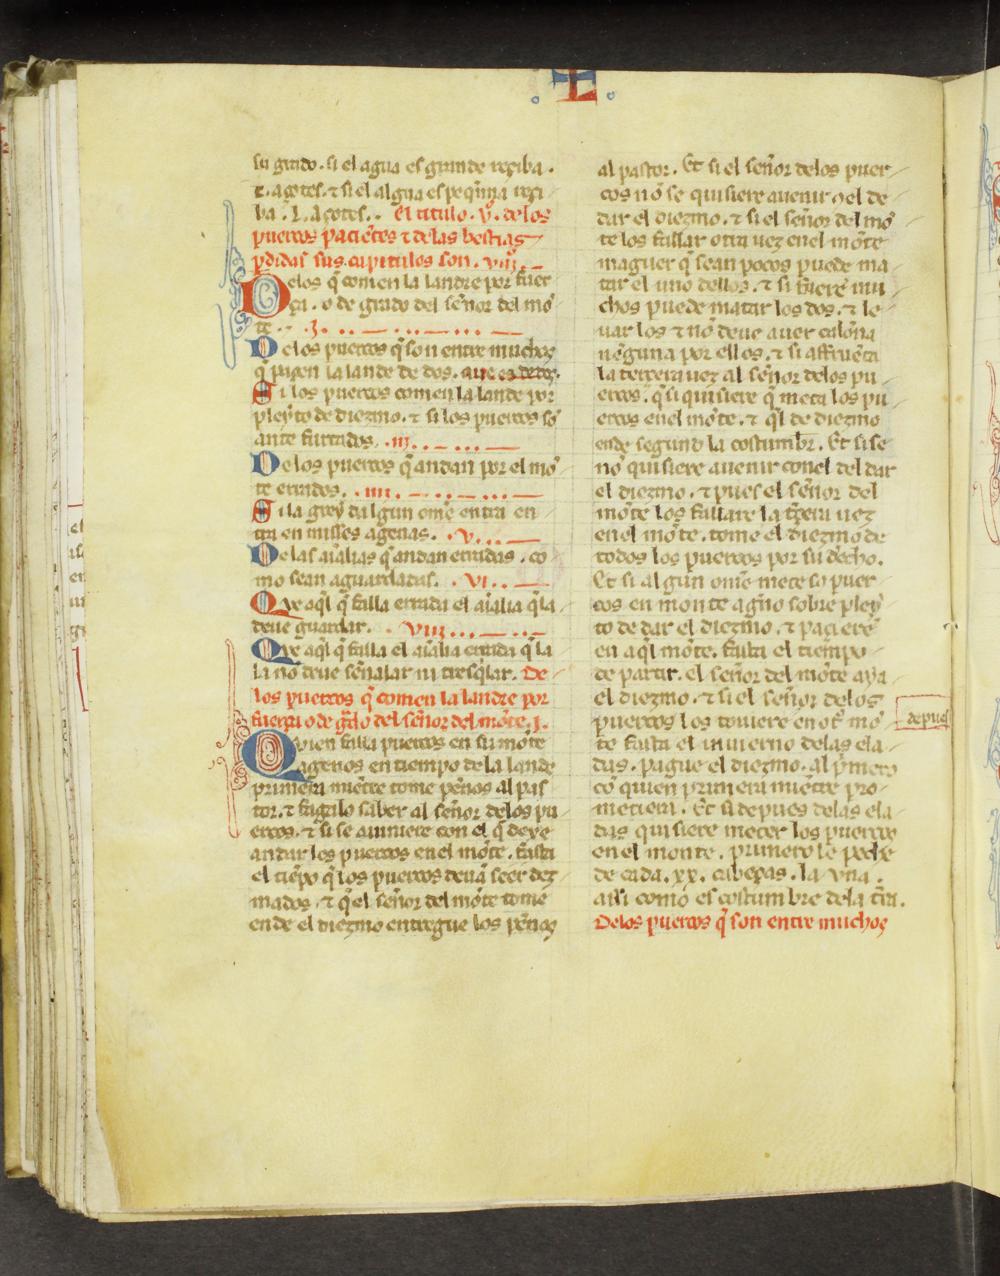 L
su grado. si el agua es grande reçiba.
.c. açotes. ⁊ si el algua es peq̃nna reçi
ba .L. açotes. . El titulo .v. de los
puercos paciẽtes ⁊ delas bestias
ꝑdidas sus capitulos son. viij.
Delos q̃ comen la landre por fuer
ça. o de grado del sẽnor del mõ
te . . j.
Delos puercos q̃ son entre muchos
q̃ paçen la lande de dos.
Si los puercos comen la lande por
pleyto de diezmo. ⁊ si los puercos so
ante furtados. .iij.
Delos puercos q̃ andan por el mõ
te errados. .iiij.
Si la grey dalgun omẽ entra en
tra en misses agenas. .v.
Delas aĩalias q̃ andan erradas. co
mo sean aguardadas. .vi.
Que aq̃l q̃ falla errada el aĩalia q̃ la
deue guardar. .viij.
Que aq̃l q̃ falla el aĩalia errada q̃ la
la nõ deue sẽnalar ni tresq̃lar. De
los puercos q̃ comen la landre por
fuerça o de g̃do del sẽnor del mõte .j.
Quien falla puercos en su mõte
agenos en tiempo de la lande
primera miẽtre tome pẽnos al pas
tor. ⁊ fagalo saber al sẽnor delos pu
ercos. ⁊ si se auiniere con el q̃ deye
andar los puercos en el mõte. fasta
el tiẽpo q̃ los puercos deuã seer dez
mados. ⁊ q̃ el sẽnor del mõte tome
ende el diezmo entregue los pẽnos
al pastor. Et si el sẽnor delos puer
cos nõ se quisiere auenir .o el de
dar el diezmo. ⁊ si el sẽnor del mõ
te los fallar otra uez en el mõte
maguer q̃ sean pocos puede ma
tar el uno dellos. ⁊ si fuerẽ mu
chos puede matar los dos. ⁊ le
uar los ⁊ nõ deue auer calõna
nẽguna por ellos. ⁊ si affruẽta
la tercera uez al sẽnor delos pu
ercos. q̃ si quisiere q̃ meta los pu
ercos en el mõte. ⁊ q̃l de diezmo
ende segund la costumbr̃. Et si se
nõ quisiere auenir con el del dar
el diezmo. ⁊ pues el sẽnor del
mõte los fallare la t̃çera uez
en el mõte. tome el diezmo de
todos los puercos por su d̃cho.
Et si algun omẽ mete so puer
cos en monte ag̃no sobre pley
to de dar el diezmo. ⁊ paçierẽ
en aq̃l mõte. fasta el tiempo
de partir. el sẽnor del mõte aya
el diezmo. ⁊ si el sẽnor delos
puercos los touiere en ot̃ mõ
depues
te fasta el inuierno delas ela
das. pague el diezmo. al p̃mero
cõ quien primera miẽtre pro
metiera. Et si depues delas ela
das quisiere meter los puercos
en el monte. primero le peche
de cada .xx. cabeças. la vna.
assi como es costumbre dela t̃ra.
Delos puercos q̃ son entre muchos